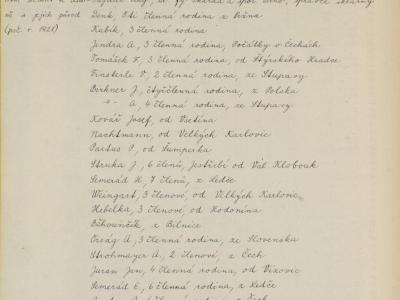 ně a jejich původ Benk, 5ti členná rodina z Brňna
(poč. r. 1921) Kubík, 3 členná rodina
Jindra A, 3 členná rodina, Počátky v Čechách
Tomášek F, 3 členná rodina, od Stýrského Hradce
Finsterle V, 2 členná rodina, ze Stupavy
Birkner J, čtyřčlenná rodina, z Polska
-"- A, 4 členná rodina, ze Stupavy
Kovář Josef, od Vsetína
Nachtmann, od Velkých Karlovic
Partus P, od Šumperka
Struka J, 6 členů, Jestřebí od Val. Klobouk
Semerád H, 7 členů, z Ledče
Weingart, 3 členové, od Velkých Karlovic
Hebelka, 3 členové, od Hodonína
Běhounčík, z Bílnice
Orság A, 3 členná rodina, ze Slovenska
Strohmayer A, 2 členové, z Čech
Juran Jan, 4 členná rodina, od Vizovic
Semerád E, 6 členná rodina, z Ledče